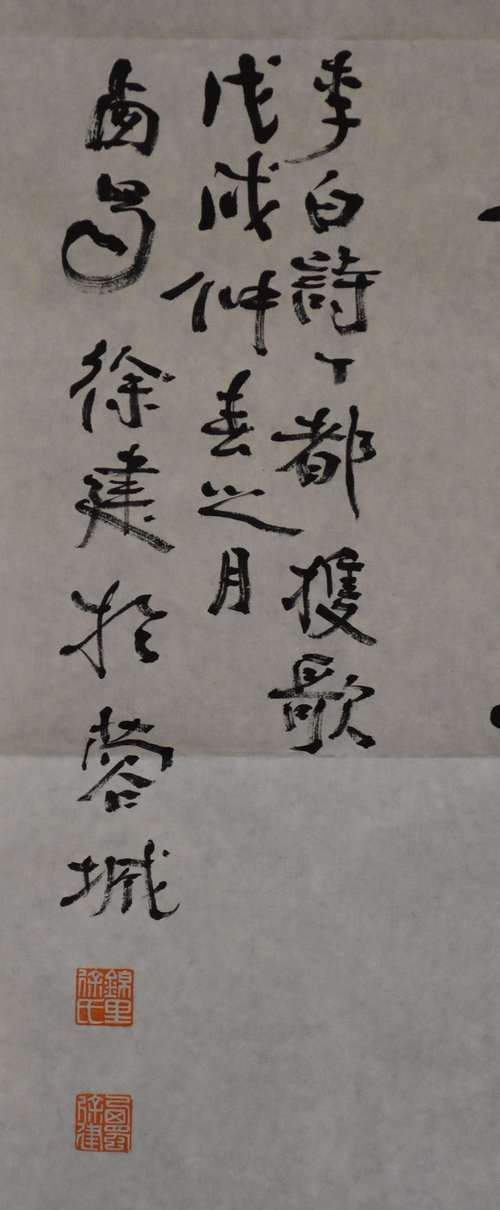 李白詩丁都護歌
戊戌仲春之月
西蜀徐建於蓉城
錦里徐氏
西蜀徐建